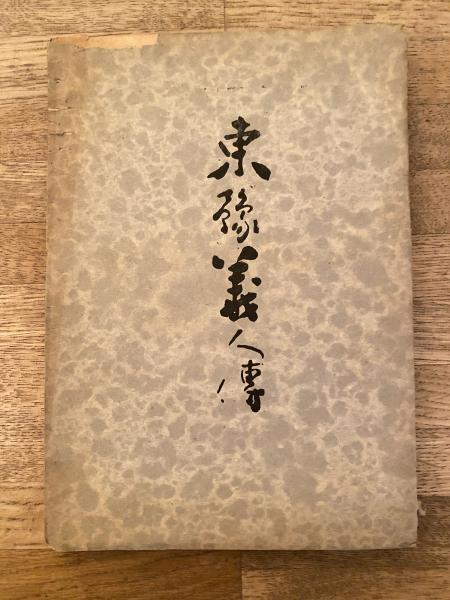 東豫義人傳